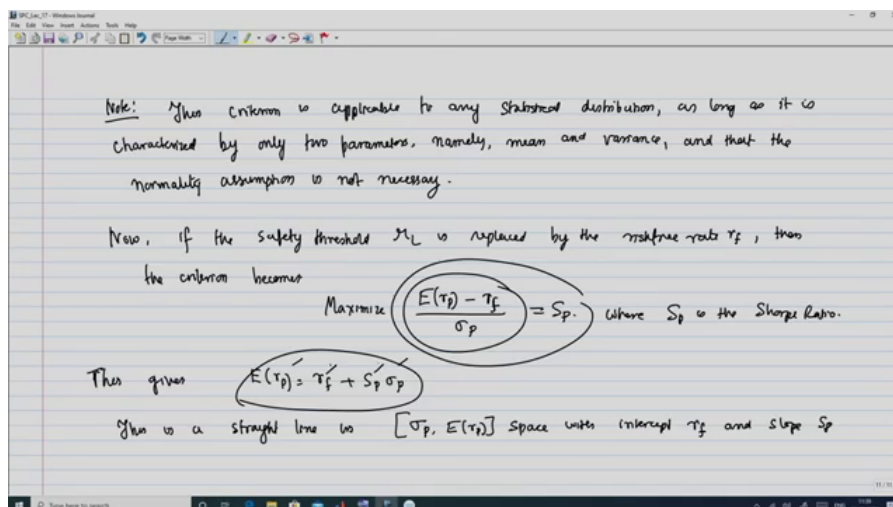 SPC_Lec_17 - Windows Journal
File Edit View Insert Actions Tools Help
Page Width
Note: This criterion is applicable to any statistical distribution, as long as it is
characterized by only two parameters, namely, mean and variance, and that the
normality assumption is not necessary.
Now, if the safety threshold r_L is replaced by the riskfree rate r_f, then
the criterion becomes
Maximize (E(r_p) - r_f) / σ_p = S_p. where S_p is the Sharpe Ratio.
This gives E(r_p) = r_f + S_p σ_p
This is a straight line in [σ_p, E(r_p)] space with intercept r_f and slope S_p
11 / 11
Type here to search
ENG 11:39